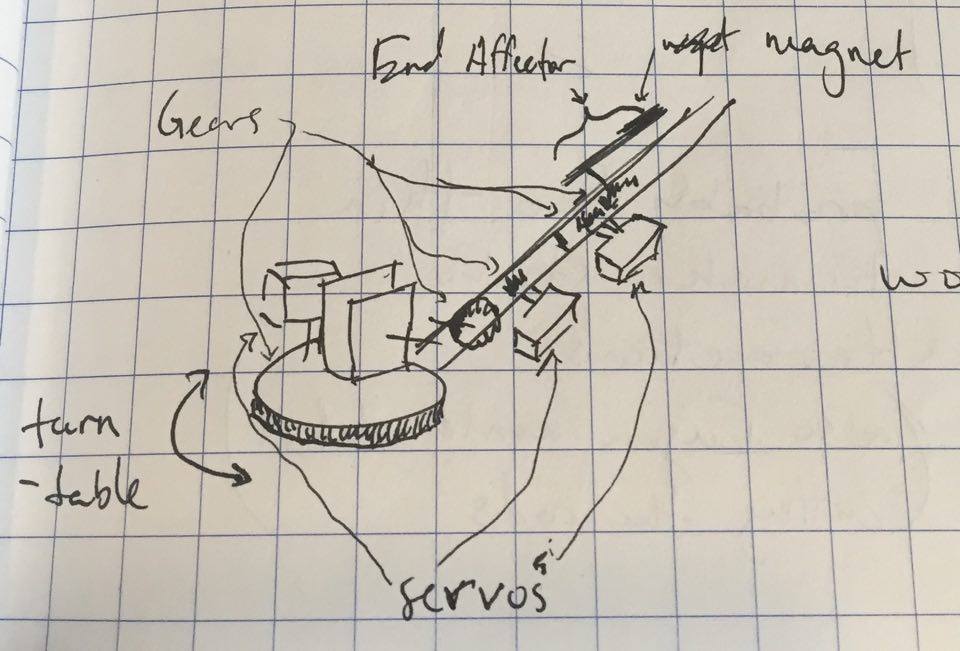 End Affector
magnet
Gears
wo
turn
-table
servos